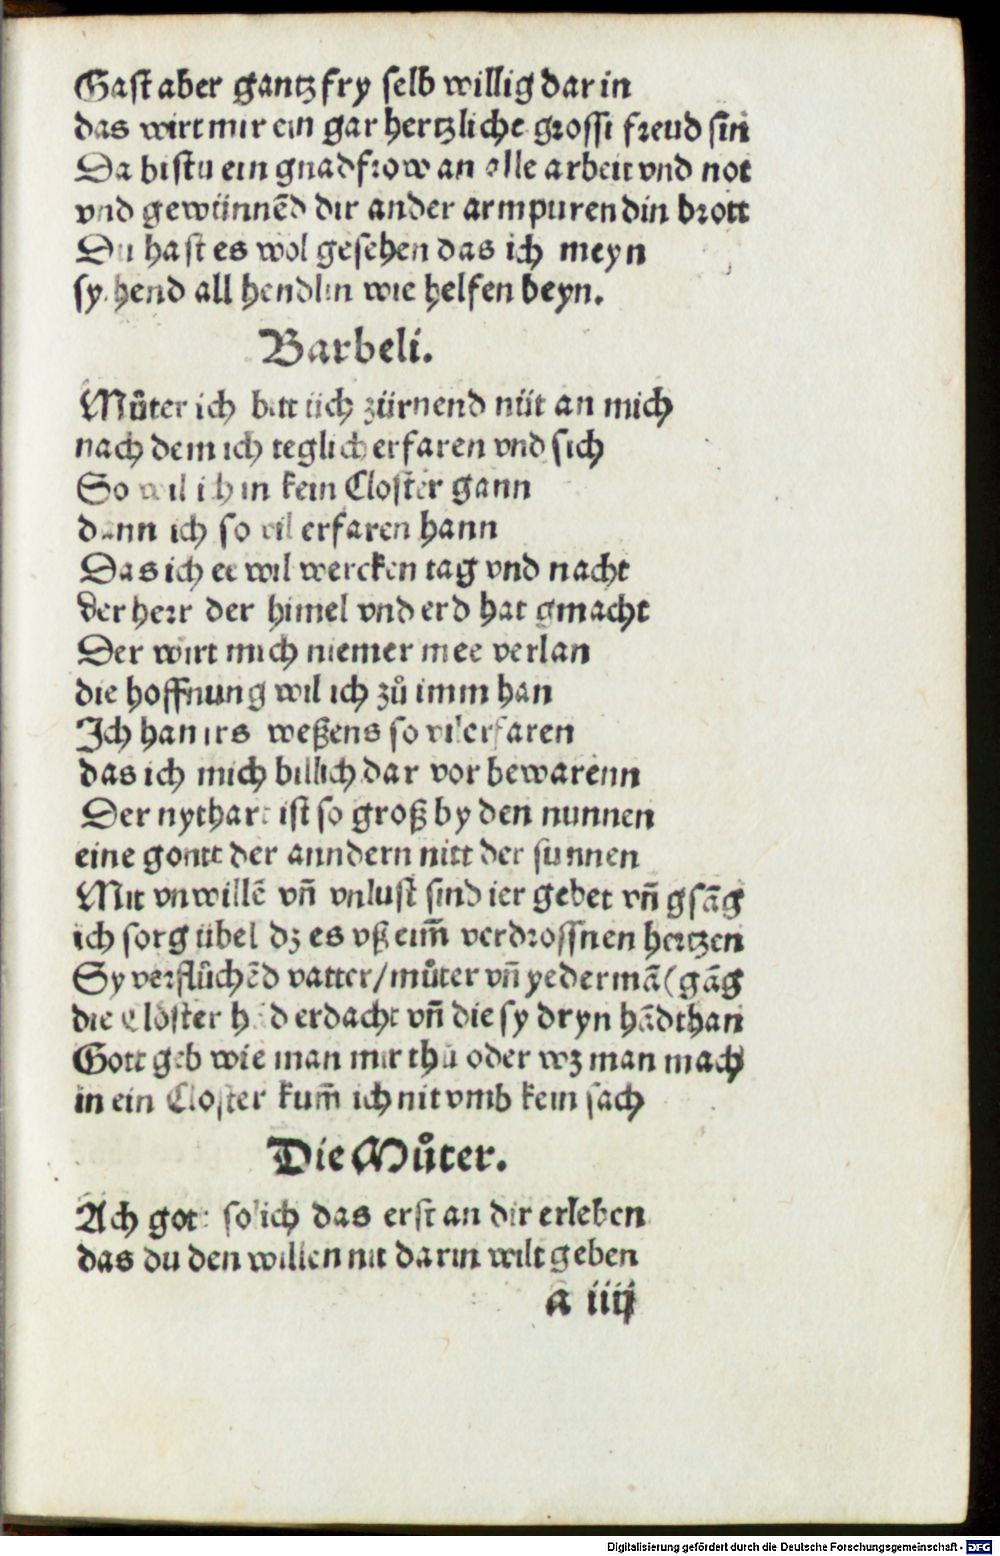 Gast aber gantz fry selb willig dar in
das wirt mir ein gar hertzliche grossi freud sin
Da bistu ein gnadfrow an alle arbeit vnd not
vnd gewünnẽd dir ander arm puren din brott
Du hast es wol gesehen das ich meyn
sy hend all hendlin wie helfen beyn.
Barbeli.
Můter ich bitt üch zürnend nüt an mich
nach dem ich teglich erfaren vnd sich
So wil ich in kein Closter gann
dann ich so vil erfaren hann
Das ich ee wil wercken tag vnd nacht
der herr der himel vnd erd hat gmacht
Der wirt mich niemer mee verlan
die hoffnung wil ich zů imm han
Ich han irs weßens so vil erfaren
das ich mich billich dar vor bewarenn
Der nythart ist so groß by den nunnen
eine gontt der anndern nitt der sunnen
Mit vnwillẽ vñ vnlust sind ier gebet vñ gsãg
ich sorg übel dz es vß eim̃ verdrossnen hertzen
Sy verflůchẽd vatter/můter vñ yederman̄ (gãg
die Clöster hãd erdacht vñ die sy dryn hãd than
Gott geb wie man mir thů oder wz man mach
in ein Closter kum̃ ich nit vmb kein sach
Die Můter.
Ach gott sol ich das erst an dir erleben
das du den willen nit darin wilt geben
a iiij
Digitalisierung gefördert durch die Deutsche Forschungsgemeinschaft - DFG